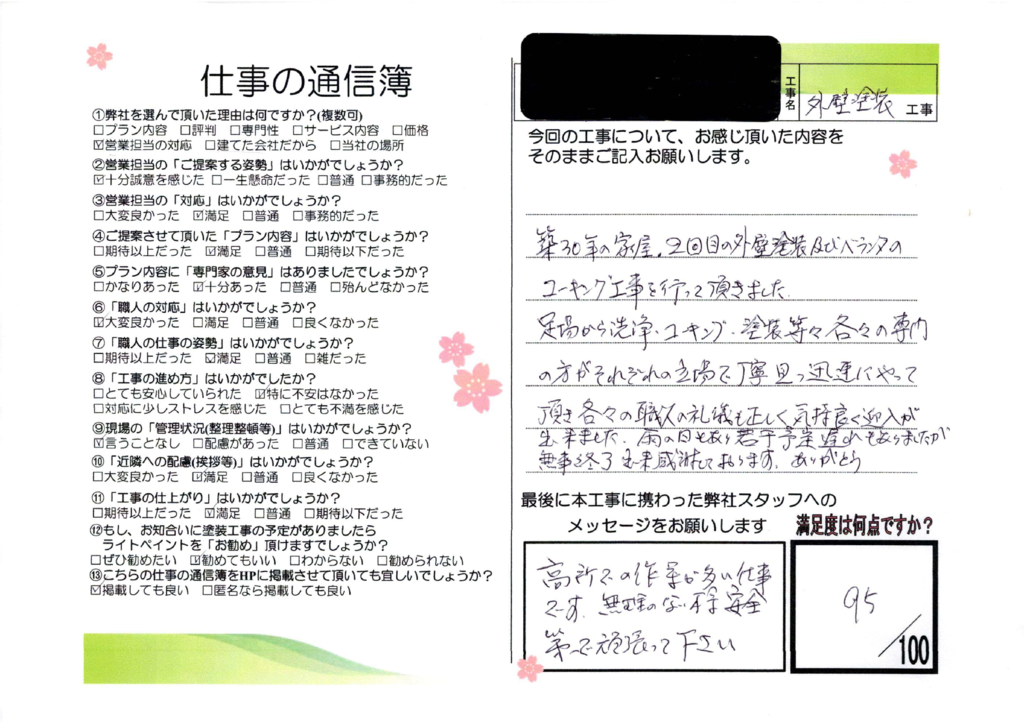 仕事の通信簿
①弊社を選んで頂いた理由は何ですか?(複数可)
□プラン内容 □評判 □専門性 □サービス内容 □価格
☑営業担当の対応 □建てた会社だから □当社の場所
②営業担当の「ご提案する姿勢」はいかがでしょうか?
☑十分誠意を感じた □一生懸命だった □普通 □事務的だった
③営業担当の「対応」はいかがでしょうか?
□大変良かった ☑満足 □普通 □事務的だった
④ご提案させて頂いた「プラン内容」はいかがでしょうか?
□期待以上だった ☑満足 □普通 □期待以下だった
⑤プラン内容に「専門家の意見」はありましたでしょうか?
□かなりあった ☑十分あった □普通 □殆んどなかった
⑥「職人の対応」はいかがでしょうか?
☑大変良かった □満足 □普通 □良くなかった
⑦「職人の仕事の姿勢」はいかがでしょうか?
□期待以上だった ☑満足 □普通 □雑だった
⑧「工事の進め方」はいかがでしたか?
□とても安心していられた ☑特に不安はなかった
□対応に少しストレスを感じた □とても不満を感じた
⑨現場の「管理状況(整理整頓等)」はいかがでしょうか?
☑言うことなし □配慮があった □普通 □できていない
⑩「近隣への配慮(挨拶等)」はいかがでしょうか?
□大変良かった ☑満足 □普通 □良くなかった
⑪「工事の仕上がり」はいかがでしょうか?
□期待以上だった ☑満足 □普通 □期待以下だった
⑫もし、お知合いに塗装工事の予定がありましたら
ライトペイントを「お勧め」頂けますでしょうか?
□ぜひ勧めたい ☑勧めてもいい □わからない □勧められない
⑬こちらの仕事の通信簿をHPに掲載させて頂いても宜しいでしょうか?
☑掲載しても良い □匿名なら掲載しても良い
工事名 外壁塗装 工事
今回の工事について、お感じ頂いた内容を
そのままご記入お願いします。
築30年の家屋.2回目の外壁塗装及びベランダの
コーキング工事を行って頂きました.
足場から洗浄・コーキング・塗装等々各々の専門
の方がそれぞれの立場で丁寧且つ迅速にやって
頂き各々の職人の礼儀も正しく気持良く迎入が
出来ました.雨の日もあり若干予定遅れもありましたが
無事終了出来感謝しております.ありがとう
最後に本工事に携わった弊社スタッフへの
メッセージをお願いします
高所での作業が多い仕事
です.無理のない様安全
第一で頑張って下さい
満足度は何点ですか?
95/100